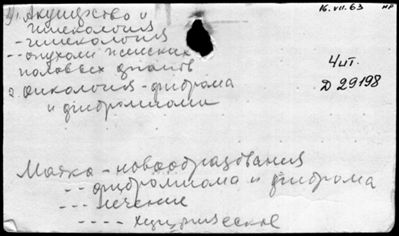 16.VII.63
1. Акушерство и
гинекология
- гинекология
-- опухоли женских
половых органов
Чит.
Д 29198
2. Онкология - фиброма
и фибромиомы
Матка - новообразования
--- фибромиома и фиброма
--- лечение
---- хирургическое